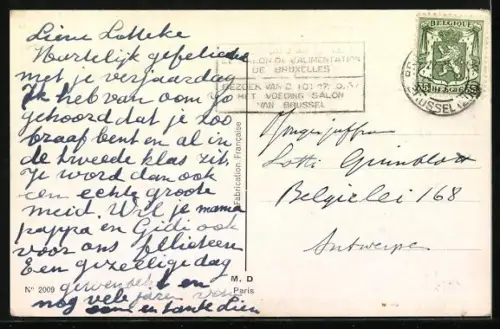 Lieve Lotteke
Hartelijk gefelici
met je verjaardag
Ik heb van oom Jo
gehoord dat je zoo
braaf bent en al in
de tweede klas zit.
Je word dan ook
een echte groote
meid. Wil je mama
pappa en Gidi ook
voor ons feliciteeren
Een gezellige dag
gewenscht en
nog vele jaren van
oom en tante Lien
SALON DE L'ALIMENTATION
DE BRUXELLES
BEZOEK VAN 2 TOT 17
HET VOEDING SALON
VAN BRUSSEL
BRUSSEL
35 BELGIE 35
Jongejuffrou
Lotti Grünblatt
Belgielei 168
Antwerpen
Fabrication Française
M. D
Paris
N° 2009